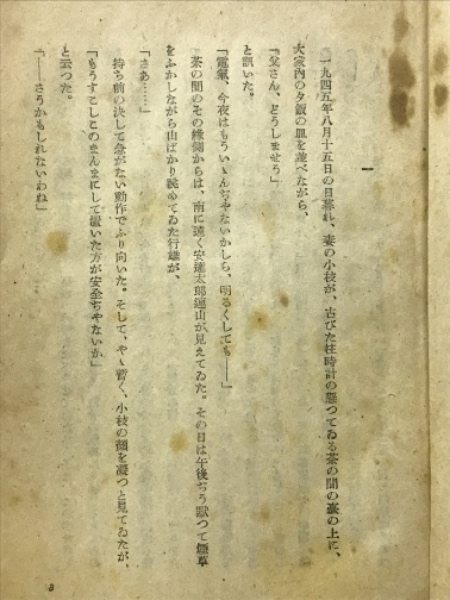 一
一九四五年八月十五日の日暮れ、妻の小枝が、古びた柱時計の懸つてゐる茶の間の台の上に、
大家内の夕飯の皿を並べながら、
「父さん、どうしませう」
と訊いた。
「電気、今夜はもういゝんぢやないかしら、明るくしても――」
茶の間のその縁側からは、南に遠く安達太郎連山が見えてゐた。その日は午後ぢう黙つて煙草
をふかしながら山ばかり眺めてゐた行雄が、
「さあ……」
持ち前の決して急がない動作でふり向いた。そして、やゝ暫く、小枝の顔を凝つと見てゐたが、
「もうすこしこのまんまにして置いた方が安全ぢやないか」
と云つた。
「――さうかもしれないわね」
3